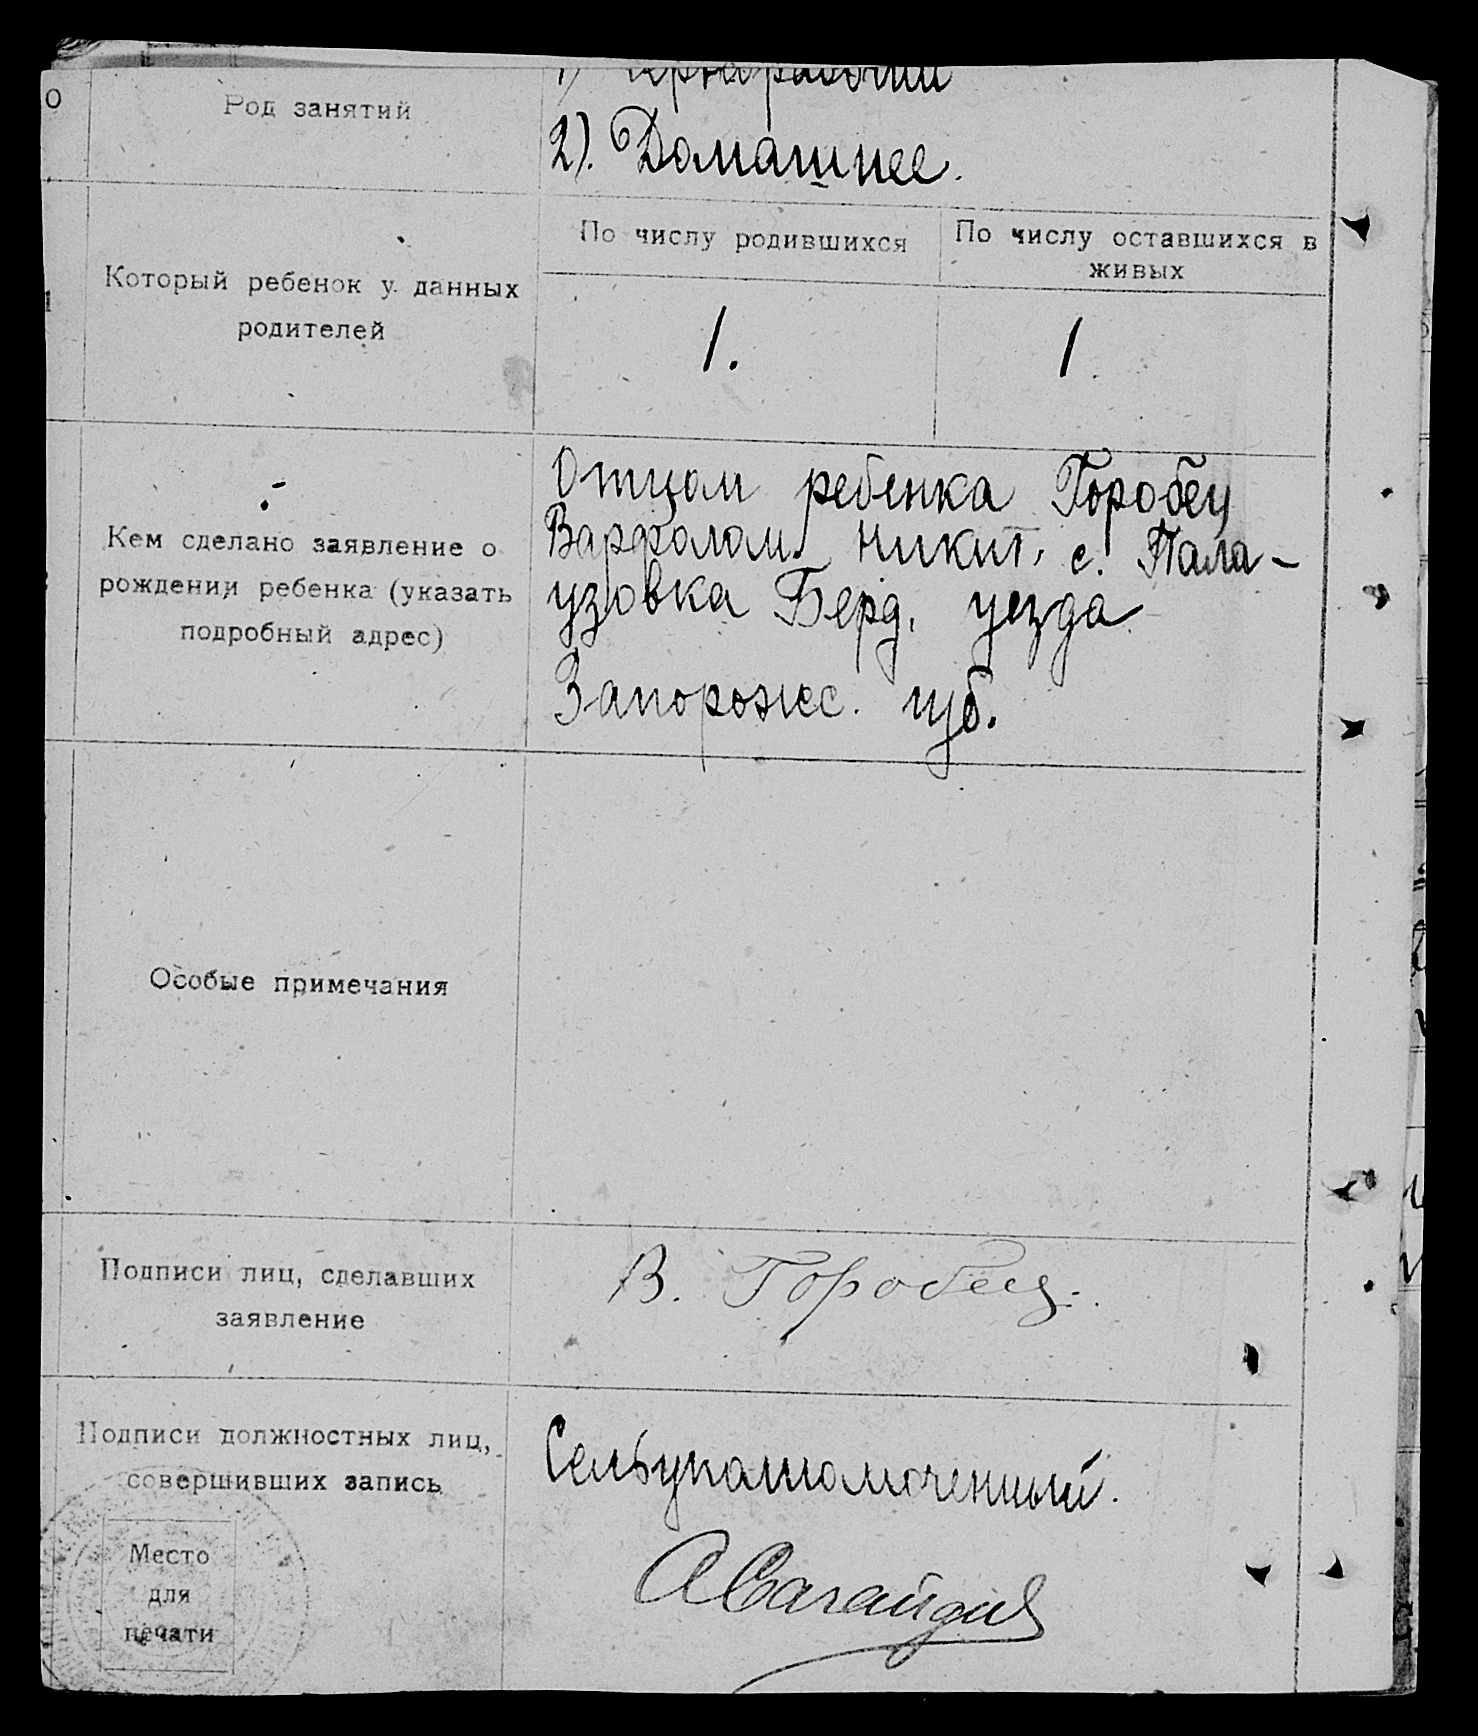 О
Род занятий
2). Домашнее.
По числу родившихся
По числу оставшихся в
живых
Который ребенок у данных
родителей
1.
1
Кем сделано заявление о
рождении ребенка (указать
подробный адрес)
Отцом ребенка Горобец
Варфолом. Никит. с. Пала-
узовка Берд. уезда
Запорожс. губ.
Особые примечания
Подписи лиц, сделавших
заявление
В. Горобец.
Подписи должностных лиц,
совершивших запись
Сельуполномоченный.
Место
для
печати